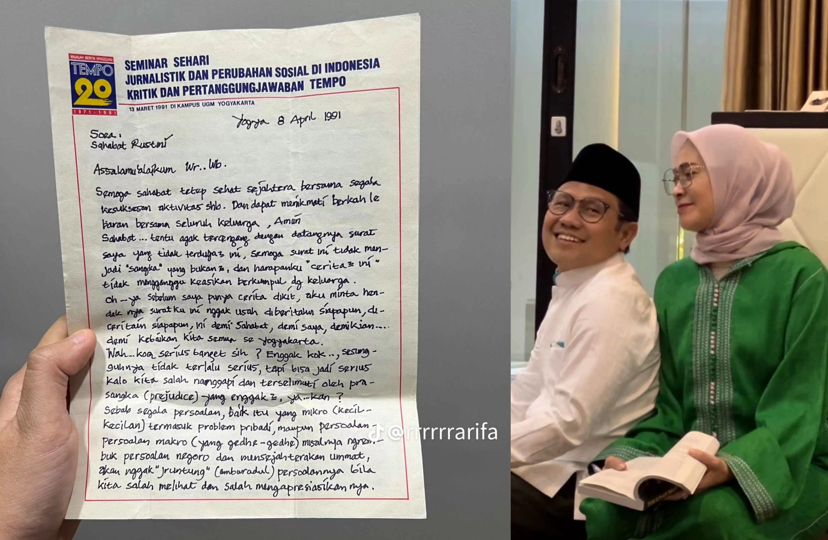 HARIAN BERITA MINGGUAN
TEMPO
20
1971-1991
SEMINAR SEHARI
JURNALISTIK DAN PERUBAHAN SOSIAL DI INDONESIA
KRITIK DAN PERTANGGUNGJAWABAN TEMPO
13 MARET 1991 DI KAMPUS UGM YOGYAKARTA
Yogya 8 April 1991
Soea.
Sahabat Rustini
Assalamu'alaikum Wr..Wb.
Semoga sahabat tetap sehat sejahtera bersama segala
kesuksesan aktivitas shb. Dan dapat menikmati berkah le
baran bersama seluruh keluarga, Amin
Sahabat... tentu agak tercengang dengan datangnya surat
saya yang tidak terduga2 ini, semoga surat ini tidak men-
jadi "sangka" yang bukan2, dan harapanku "cerita2 ini"
tidak mengganggu keasikan berkumpul dg keluarga.
Oh-ya sebelum saya punya cerita dikit, aku minta hen-
dak nya suratku ini nggak usah diberitahu siapapun, di-
ceritain siapapun, ini demi Sahabat, demi saya, demikian....
demi kebaikan kita semua se Yogyakarta.
Nah..koq serius banget sih ? Enggak kok.., sesung-
guhnya tidak terlalu serius, tapi bisa jadi serius
kalo kita salah nanggapi dan terselimuti oleh pra-
sangka (prejudice)-yang enggak2, ya..kan ?
Sebab segala persoalan, baik itu yang mikro (kecil-
kecilan) termasuk problem pribadi, maupun persoalan
persoalan makro (yang gedhe-gedhe) misalnya ngrem
buk persoalan negoro dan mensejahterakan ummat,
akan nggak "jruntung" (amburadul) persoalannya bila
kita salah melihat dan salah mengapresiasikan nya.
@rrrrrrarifa